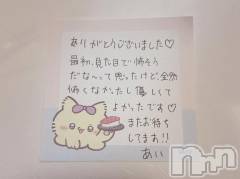 ありがとうございました♡
最初、見た目で怖そう
だな〜って思ったけど、全然
怖くなかったし優しくて
よかったです♡
またお待ち
してます!!
あい